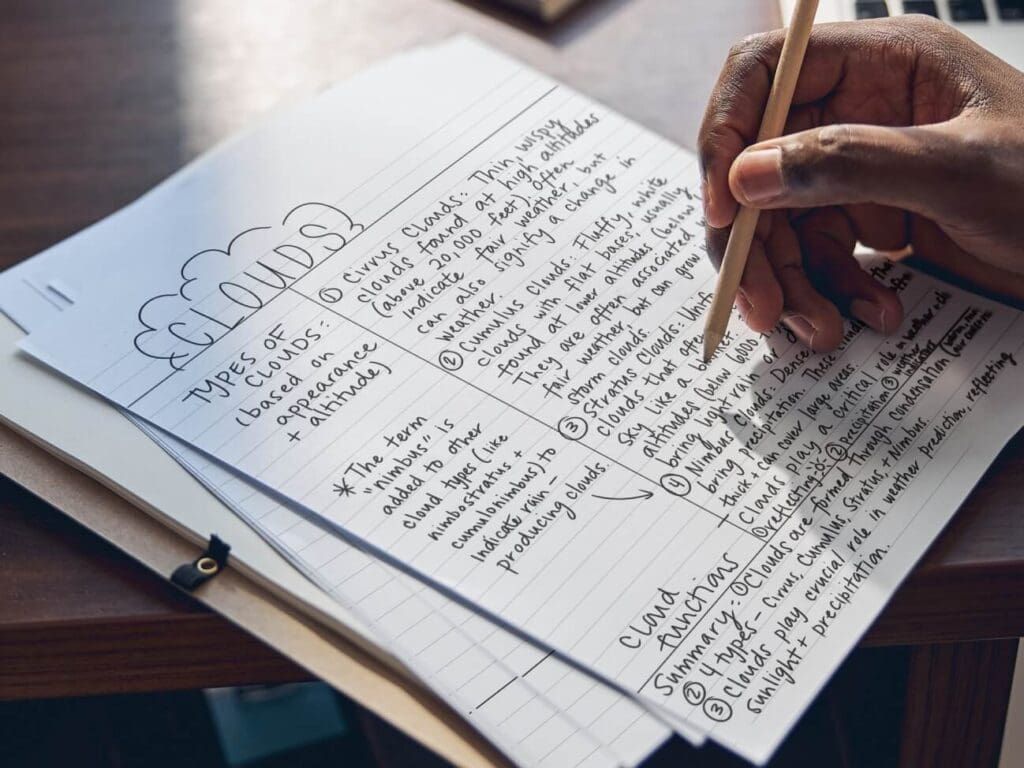 CLOUDS
TYPES OF
CLOUDS:
(based on
appearance
+ altitude)
*The term
"nimbus" is
added to other
cloud types (like
nimbostratus +
cumulonimbus) to
indicate rain-
producing clouds.
① Cirrus Clouds: Thin, wispy
clouds found at high altitudes
(above 20,000 feet). Often
indicate fair weather, but
can also signify a change in
weather.
② Cumulus Clouds: Fluffy, white
clouds with flat bases; usually
found at lower altitudes (below
They are often associated
fair weather but can grow
storm clouds.
③ Stratus Clouds:
clouds that
sky like a
altitudes (below 6000
bring light rain or
① Nimbus Clouds: Dense
bring precipitation. These
think + can cover large areas.
Cloud
functions
Clouds play a critical role in weather
① reflecting ② precipitation ③
Summary: ① Clouds are formed through condensation
② 4 types- Cirrus, Cumulus, Stratus + Nimbus.
③ Clouds play crucial role in weather prediction, reflecting
sunlight + precipitation.